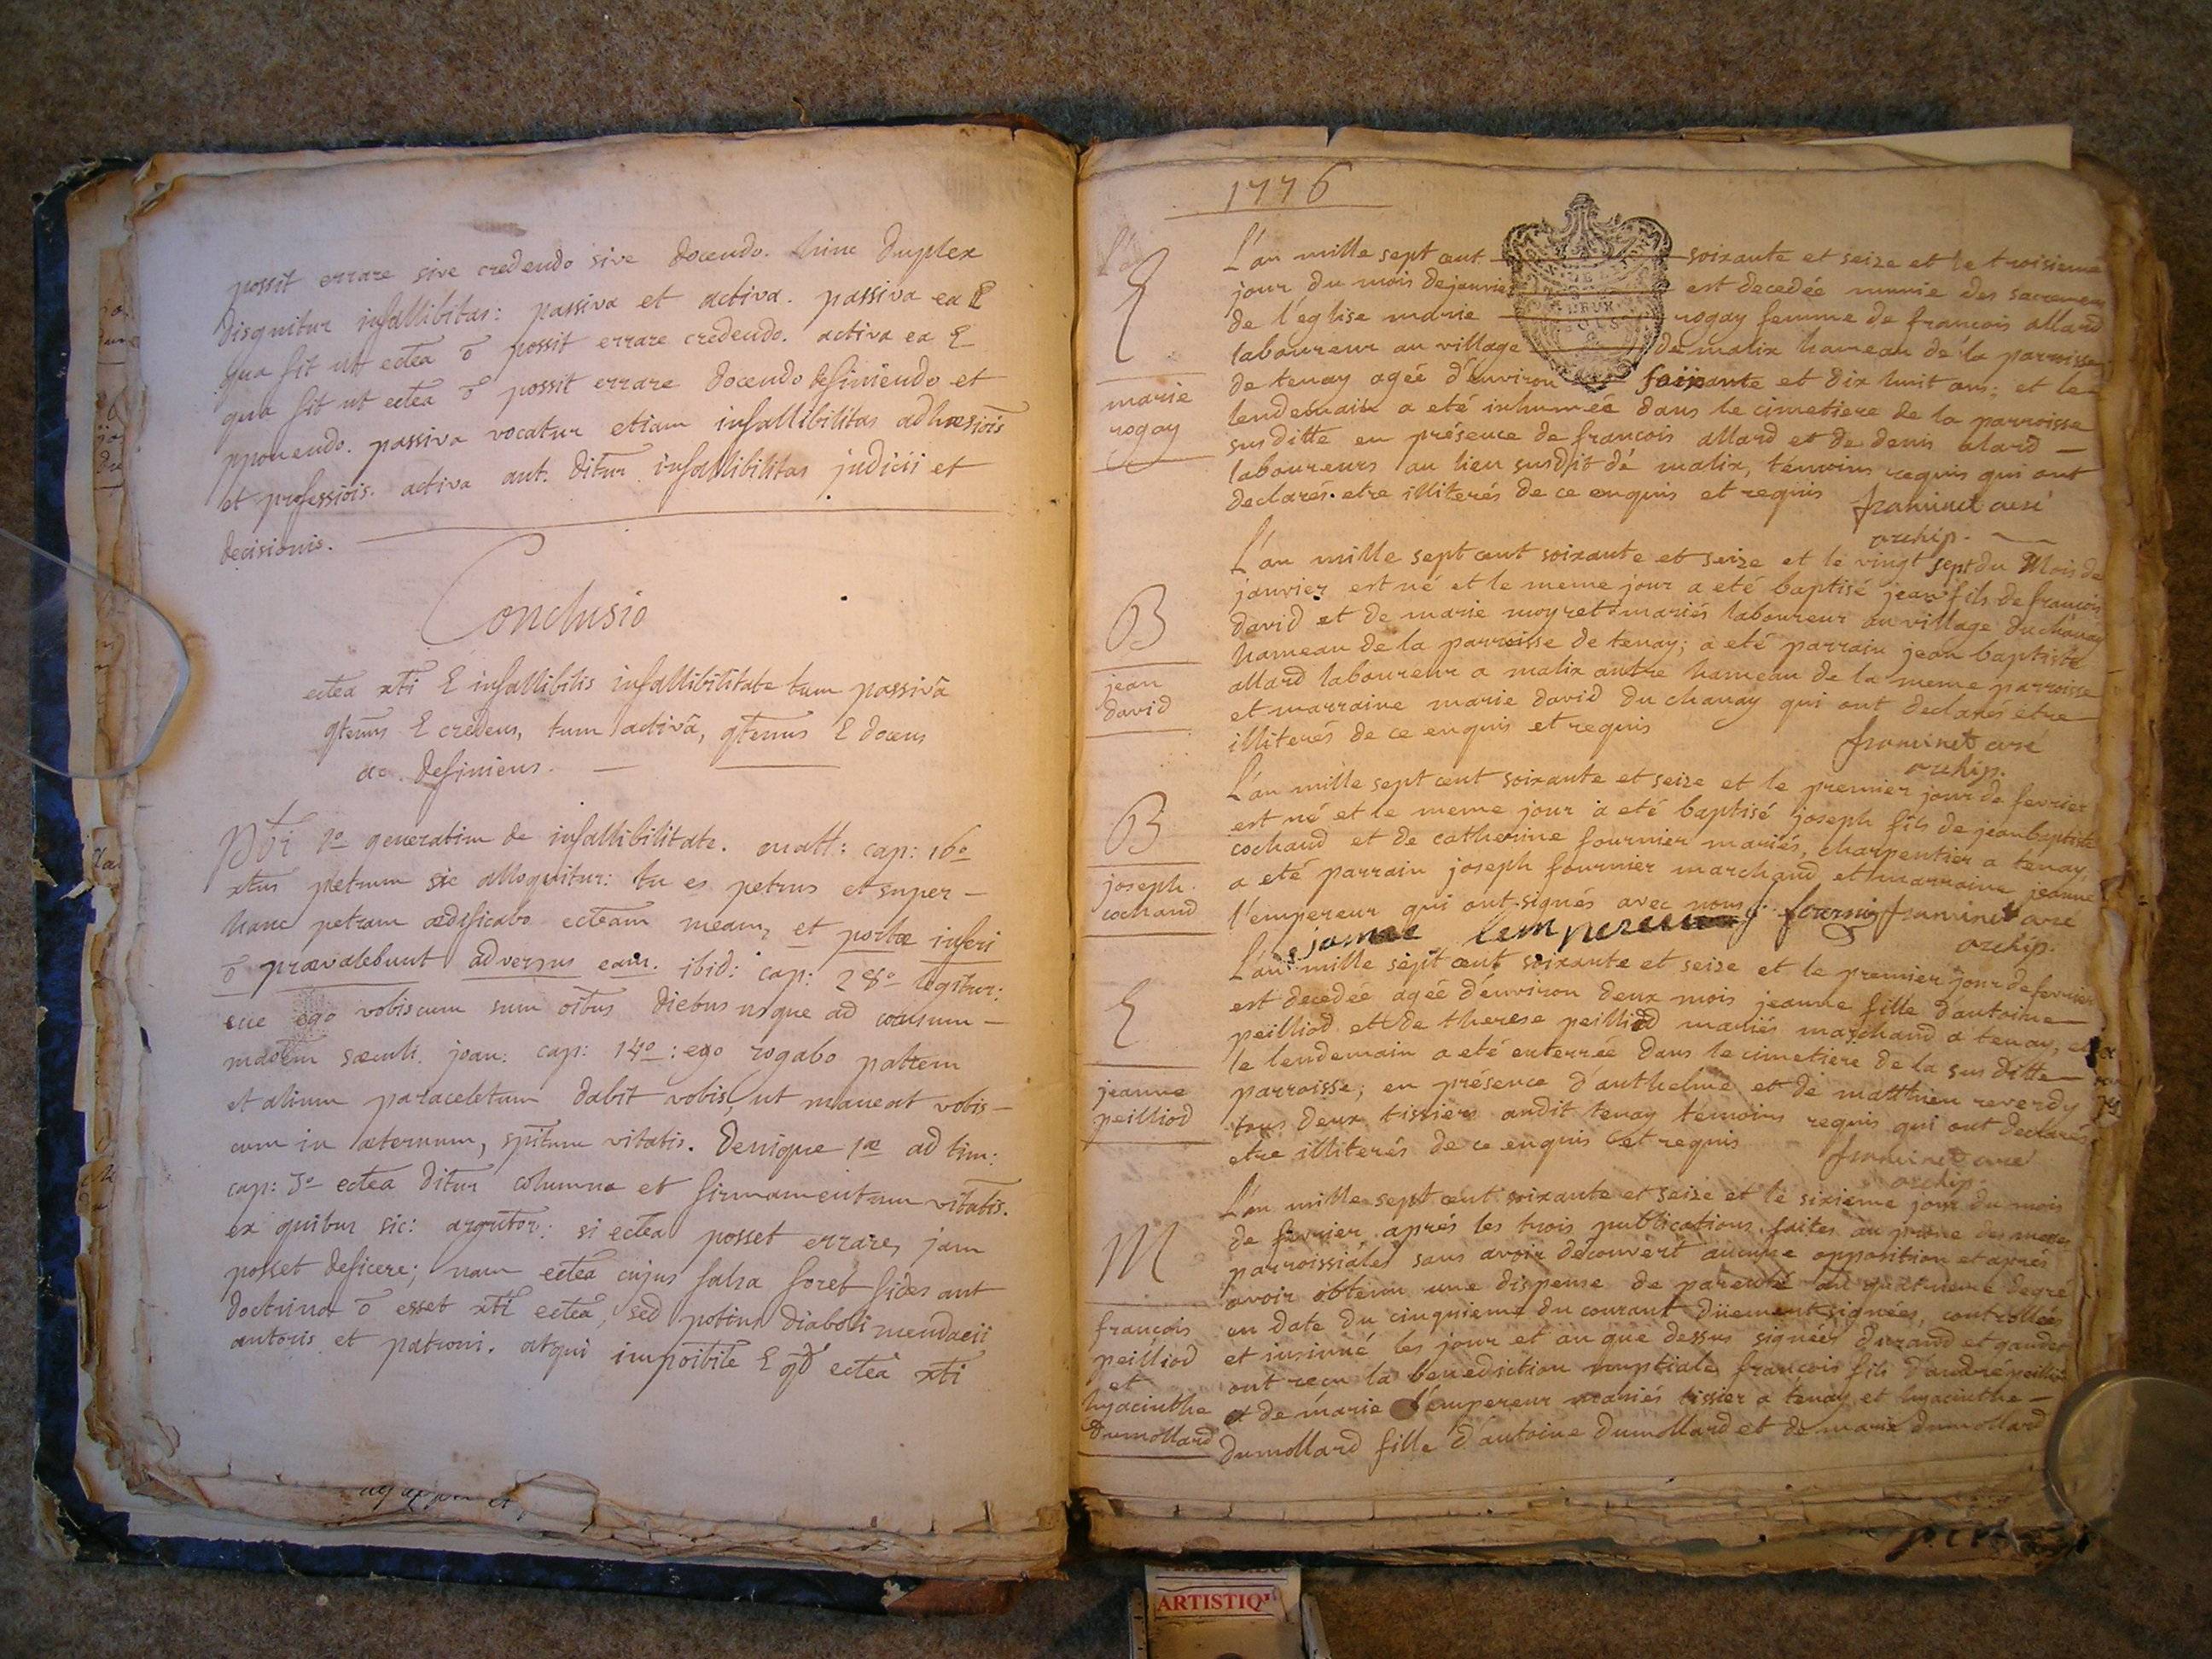 possit errare sive credendo sive docendo. hinc duplex
disgnitur infallibitas: passiva et activa. passiva ea
qua fit ut ectea possit errare credendo. activa ea
qua fit ut ectea possit errare docendo definiendo et
pponendo. passiva vocatur etiam infallibilitas adhæsiois
et professiois. activa aut. ditur infallibilitas judicii et
decisionis.
Conclusio
ectea xti infallibilis infallibilitate tum passivâ
qtenus credens, tum activâ, qtenus docens
ac definiens.
1º generatim de infallibilitate. matt: cap: 16º
xtus petrum sic alloquitur: tu es petrus et super
hanc petram ædificabo ecteam meam, et portæ inferi
prævalebunt adversus eam. ibid: cap: 28º legitur:
ecce ego vobiscum sum oibus diebus usque ad consum-
maoem sæculi. joan: cap: 14º: ego rogabo patrem
et alium paracletum dabit vobis, ut maneat vobis-
cum in æternum, spitum vitatis. denique 1æ ad tim:
cap: 3º ectea ditur columna et firmamentum vitatis.
ex quibus sic: arguitor: si ectea posset errare, jam
posset deficere; nam ectea cujus falsa foret fides aut
doctrina esset xti ectea, sed potius diaboli mendacii
autoris et patroni. atqui impoibile qd ectea xti
1776
L'an mille sept cent soixante et seize et le troisieme
jour du mois de janvier est decedée munie des sacremens
de l'église marie rogay femme de francois allard
laboureur au village de malix hameau de la parroisse
de tenay agée d'environ soixante et dix huit ans; et le
marie lendemain a eté inhumée dans le cimetiere de la parroisse
rogay susditte en présence de francois allard et de denis alard
laboureurs au lieu susdit de malix, témoins requis qui ont
declarés etre illiterés de ce enquis et requis framinet curé
archip.
L'an mille sept cent soixante et seize et le vingt sept du Mois de
janvier est né et le meme jour a eté baptisé jean fils de francois
B david et de marie moyret mariés laboureur au village du chanay
hameau de la parroisse de tenay; a eté parrain jean baptiste
jean allard laboureur a malix autre hameau de la meme parroisse
david et marraine marie david du chanay qui ont declarés etre
illiterés de ce enquis et requis framinet curé
archip.
L'an mille sept cent soixante et seize et le premier jour de fevrier
est né et le meme jour a eté baptisé joseph fils de jean baptiste
B cochand et de catherine fournier mariés, charpentier a tenay,
joseph a eté parrain joseph fournier marchand et marraine jeanne
cochand l'empereur qui ont signés avec nous j. fournier framinet curé
jeanne lempereur archip.
L'an mille sept cent soixante et seize et le premier jour de fevrier
est decedée agée d'environ deux mois jeanne fille d'antoine
peilliod et de therese peilliod mariés marchand a tenay, et
le lendemain a eté enterrée dans le cimetiere de la sus ditte
jeanne parroisse; en présence d'anthelme et de matthieu reverdy
peilliod tous deux tissiers audit tenay témoins requis qui ont declarés
etre illiterés de ce enquis et requis framinet curé
archip.
L'an mille sept cent soixante et seize et le sixieme jour du mois
de fevrier, aprés les trois publications faites au prone des messes
M parroissiales sans avoir découvert aucune opposition et aprés
avoir obtenu une dispense de parenté au quatrieme degré
francois en date du cinquieme du courant düement signées, controllées
peilliod et insinué les jour et an que dessus signées durand et gaudet
et ont recu la benediction nuptiale francois fils d'andré peilliod
hyacinthe et de marie l'empereur mariés tissier a tenay et hyacinthe
dumollard dumollard fille d'antoine dumollard et de marie dumollard
ARTISTIQ